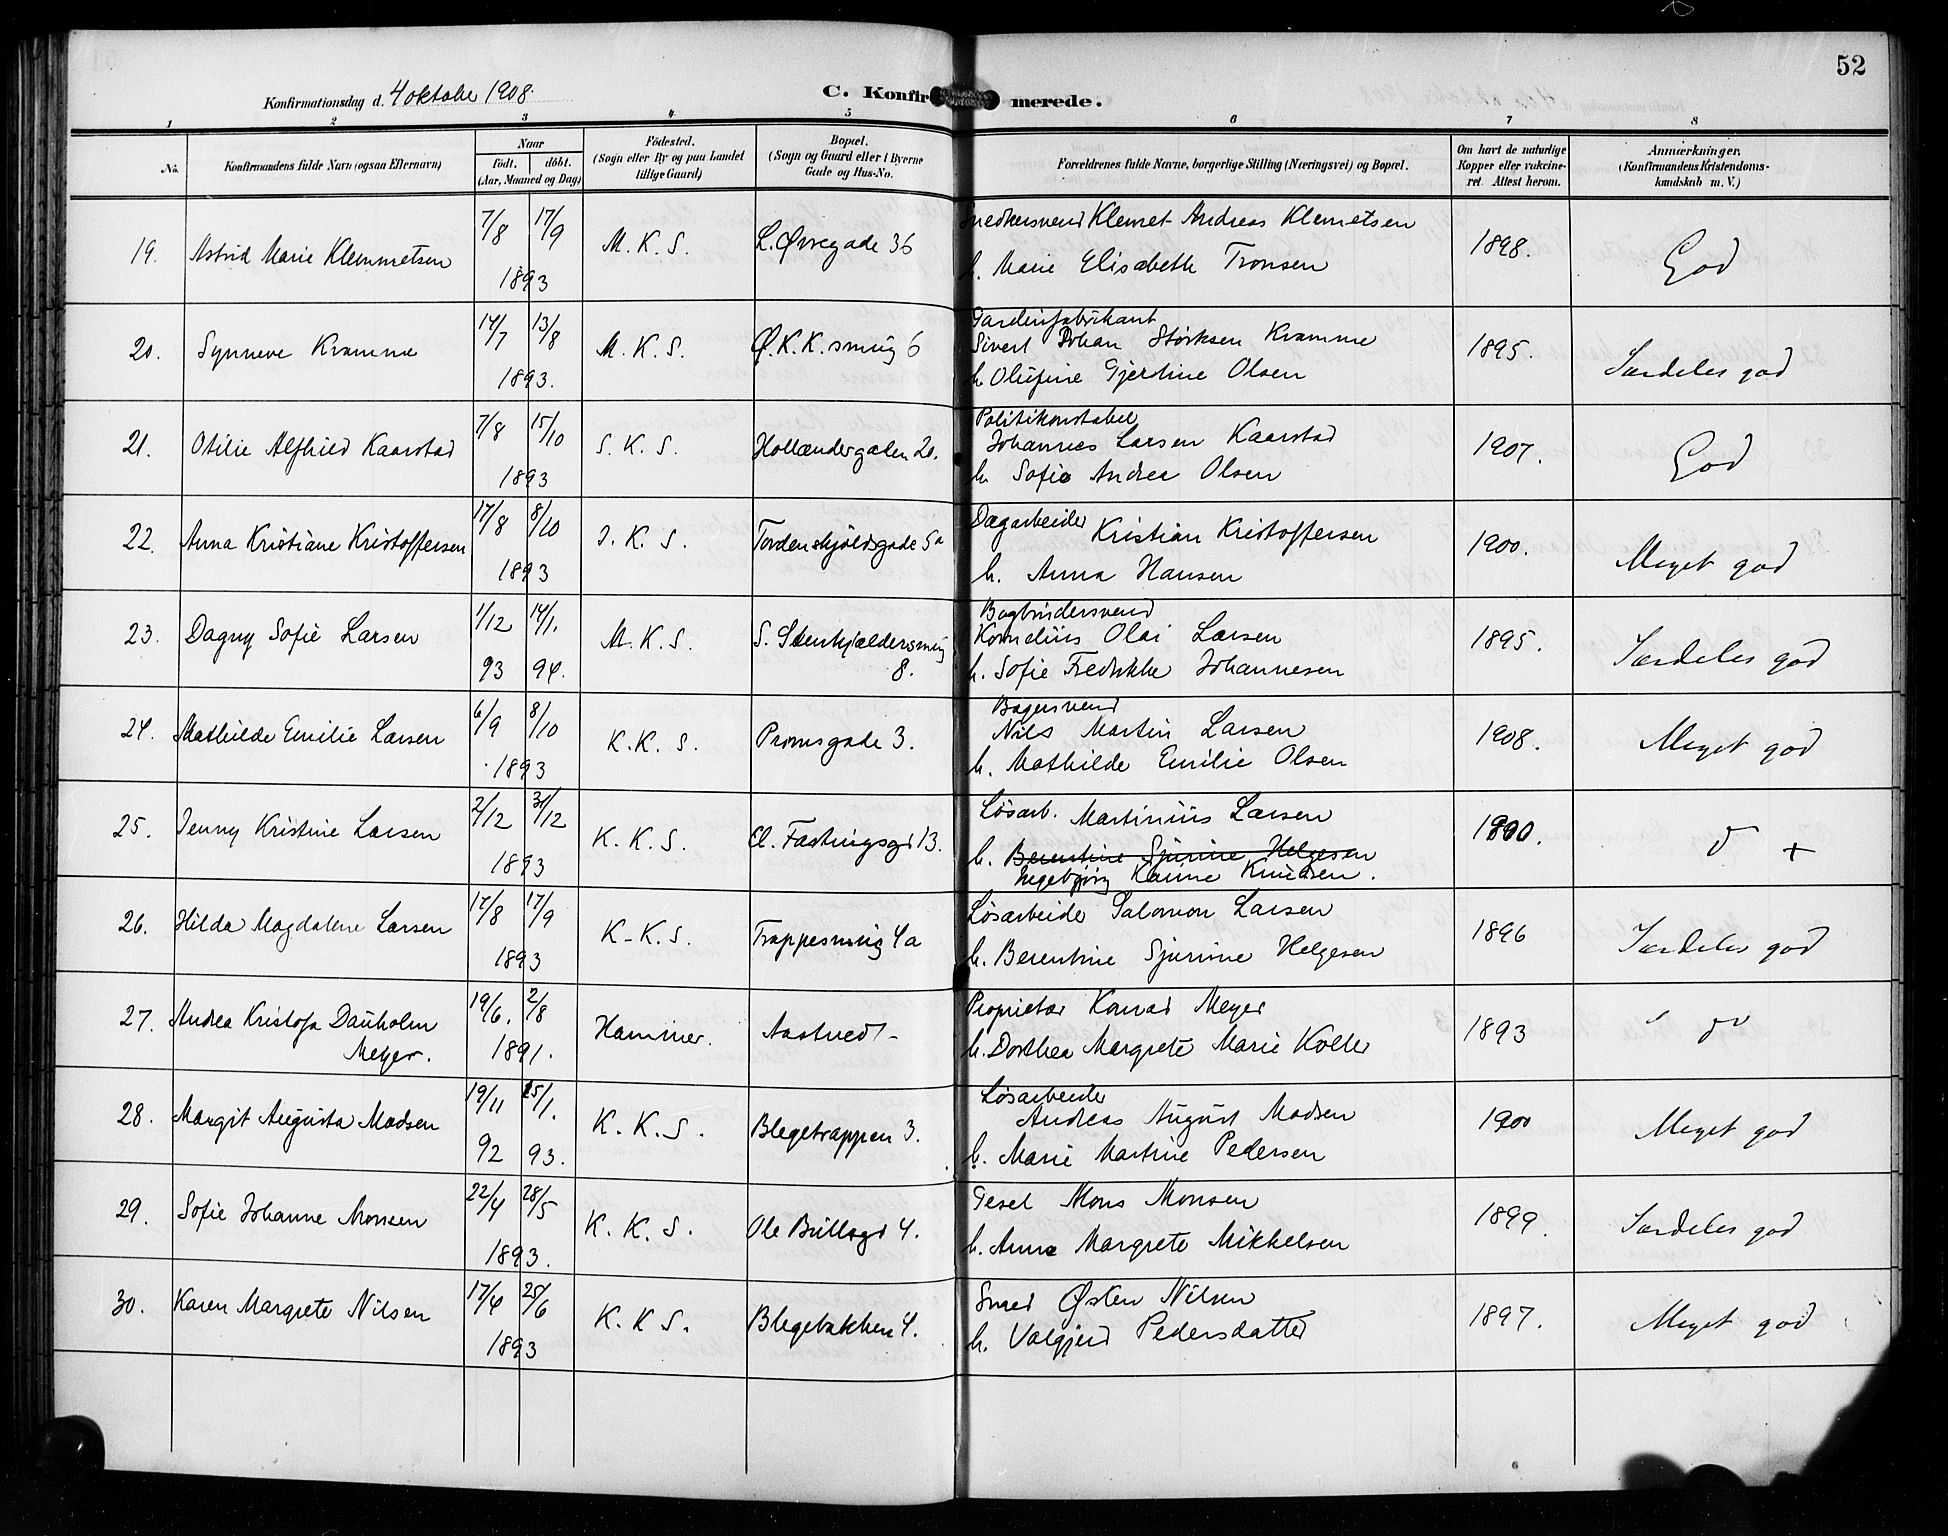 52
Konfirmationsdag d. 4 oktober 1908.
C. Konfirmerede.
1 2 3 4 5 6 7 8
No.
Konfirmandens fulde Navn (ogsaa Efternavn)
Naar
födt. döbt.
(Aar, Maaned og Dag)
Födested.
(Sogn eller By og paa Landet
tillige Gaard)
Bopæl.
(Sogn og Gaard eller i Byerne
Gade og Hus-No.
Forældrenes fulde Navne, borgerlige Stilling (Næringsvei) og Bopæl.
Om havt de naturlige
Kopper eller vakcine-
ret. Attest herom.
Anmærkninger.
(Konfirmandens Kristendoms-
kundskab m. V.)
19. Astrid Marie Klemmetsen 7/8 17/9 1893 M. K. S. L. Øvregade 36
Snedkersvend Klemet Andreas Klemetsen
h. Marie Elisabeth Tronsen
1898. God
20. Synneve Kramme 14/7 13/8 1893. M. K. S. Ø. K. K. smug 6
Gardinfabrikant
Sivert Johan Størksen Kramme
h. Olufine Gjertine Olsen
1895. Særdeles god
21. Otilie Alfhild Kaarstad 7/8 15/10 1893 S. K. S. Hollændergaden 20.
Politikonstabel
Johannes Larsen Kaarstad
h. Sofie Andrea Olsen
1907. God
22. Anna Kristiane Kristoffersen 17/8 8/10 1893 J. K. S. Tordenskjoldsgade 5a
Dagarbeider
Kristian Kristoffersen
h. Anna Hansen
1900. Meget god
23. Dagny Sofie Larsen 1/12 14/1. 93 94. M. K. S. S. Stenkjældersmug
8.
Bogbindersvend
Kornelius Olai Larsen
h. Sofie Fredrikke Johannesen
1895. Særdeles god
24. Mathilde Emilie Larsen 6/9 8/10 1893 K. K. S. Promsgade 3.
Bagersvend
Nils Martin Larsen
h. Mathilde Emilie Olsen
1908. Meget god
25. Jenny Kristine Larsen 2/12 31/12 1893 K. K. S. Cl. Fastingsgd 13.
Løsarb. Martinius Larsen
h. Berentine Sjurine Helgesen
Ingebjørg Karine Knudsen.
1900. d +
26. Hilda Magdalene Larsen 17/8 17/9 1893 K. K. S. Trappesmug 4a
Løsarbeide Salomon Larsen
h. Berentine Sjurine Helgesen
1896 Særdeles god
27. Andrea Kristofa Dauholm
Meyer. 19/6. 2/8 1891. Hammer. Aastvedt
Proprietær Konrad Meyer
h. Dorthea Margrete Marie Koller
1893
28. Margit Augusta Madsen 19/11 25/1. 92 93. K. K. S. Blegetrappen 3.
Løsarbeide
Andreas August Madsen
h. Marie Martine Pedersen
1900 Meget god
29. Sofie Johanne Monsen 22/4 28/5 1893. K. K. S. Ole Bullsgd 4.
Gesel Mons Monsen
h. Anna Margrete Mikkelsen
1899. Særdeles god
30. Karen Margrete Nilsen 17/4 25/6 1893 K. K S. Blegebakken 4.
Smed Østen Nilsen
h. Valgjerd Pedersdatter
1897. Meget god